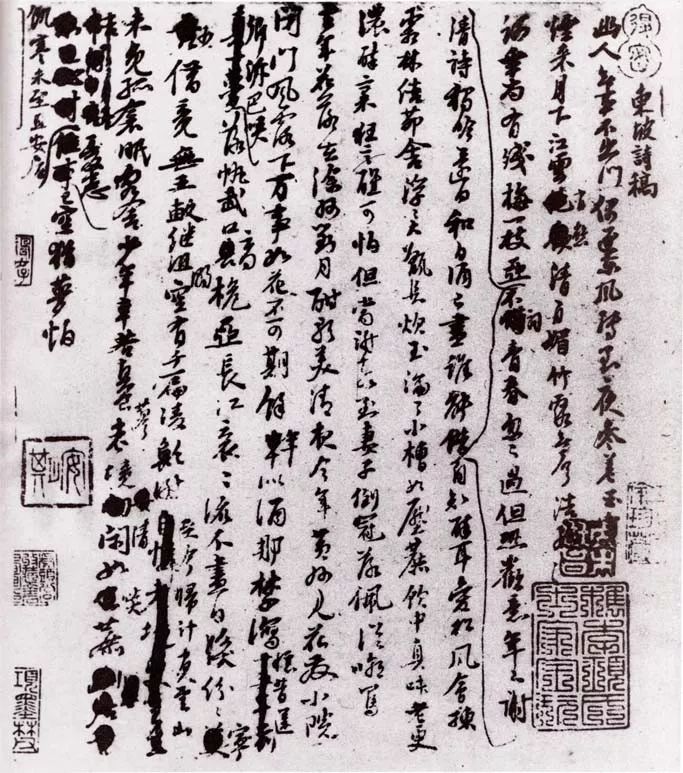 東坡詩稿
幽人無事不出門偶逐東風轉良夜參差玉
煙來月下江雲有態清自媚竹露無聲浩
尚有殘梅一枝亞不惜青春忽忽過但恐歡意年年謝
清詩獨吟還自和白酒已盡誰能借自知醉耳愛松風會揀
霜林結茅舍浮浮大甑長炊玉溜溜小槽如壓蔗飲中真味老更
濃醉裏狂言醒可怕但當謝客對妻子倒冠落佩從嘲罵
去年花落在徐州對月酣歌美清夜今年黃州見花發小院
閉門風露下萬事如花不可期餘年似酒那禁瀉憶昔還
鄉泝巴峽落帆武口高桅亞長江袞袞流不盡白髮紛紛寧
少借竟無五畝繼沮溺空有千篇凌鮑謝歸計負雲山
未免孤衾眠客舍少年辛苦真食蓼老境清閑如啖蔗
憂患已空猶夢怕
飢寒未至且安居
安岐
項墨林父